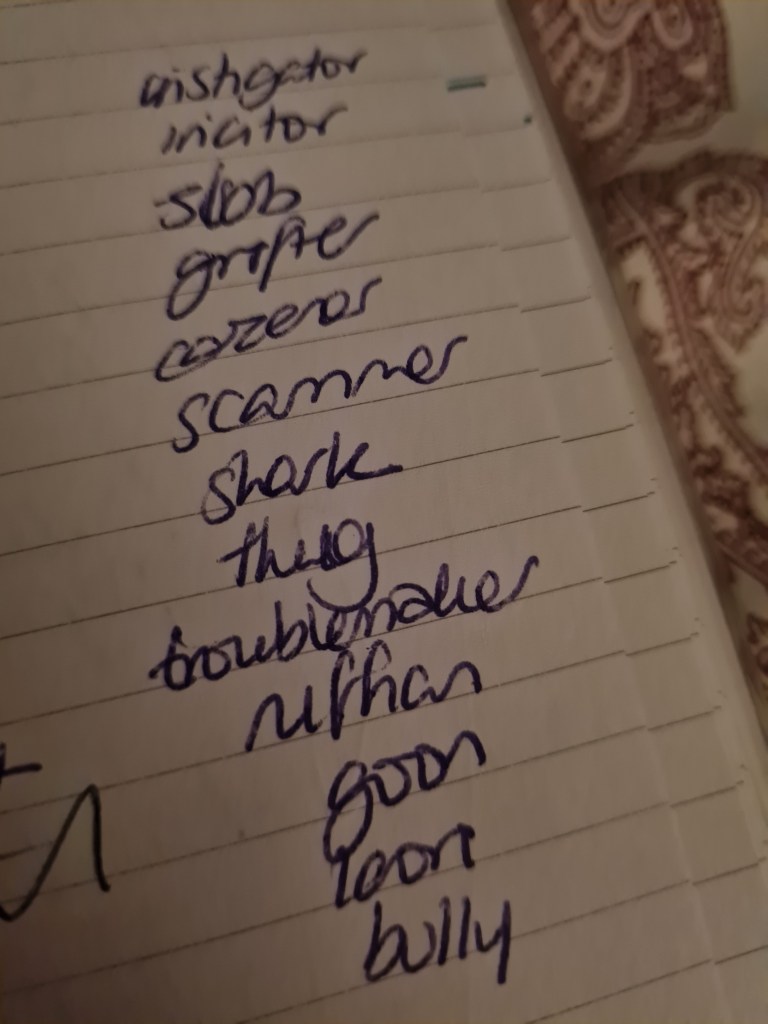 instigator
inciter
slob
grifter
cozener
scammer
shark
thug
troublemaker
ruffian
goon
loon
bully